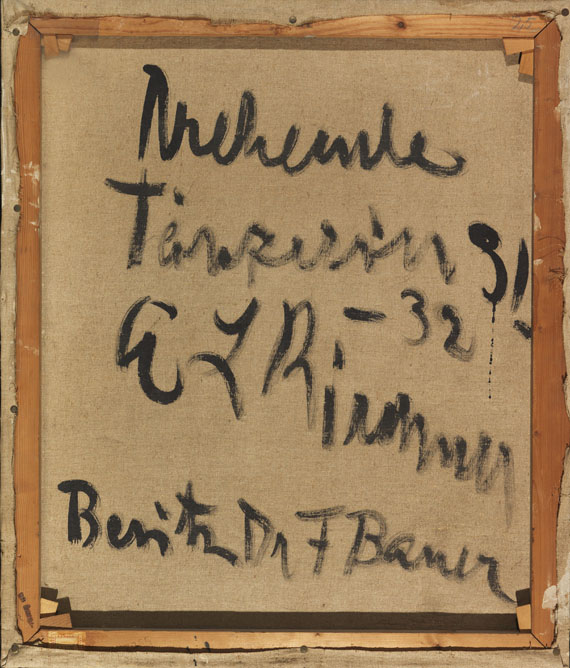 Tänzerin 31
- 32
E L Kirchner
Besitz Dr F Bauer